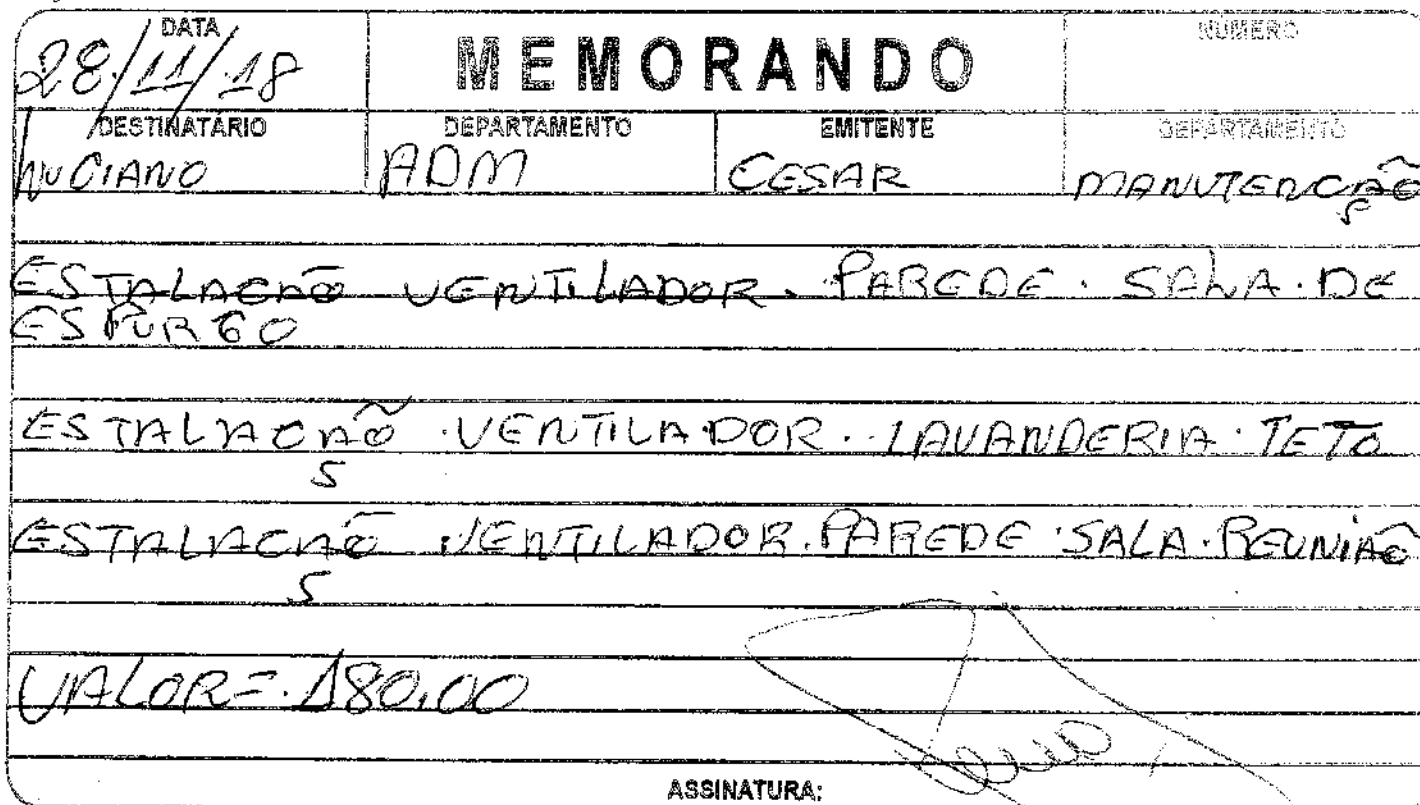 DATA
MEMORANDO
NÚMERO
28/11/18
DESTINATÁRIO DEPARTAMENTO EMITENTE DEPARTAMENTO
LUCIANO ADM CESAR MANUTENCÃO
ESTALACÃO VENTILADOR. PAREDE. SALA. DE
ESPURGO
ESTALAÇÃO. VENTILADOR.. LAVANDERIA. TETO
ESTALAÇÃO VENTILADOR. PAREDE. SALA. REUNIÃO
VALOR=.180,00
ASSINATURA: